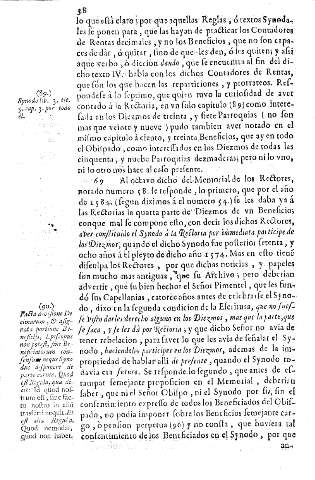 38
lo que está claro ; por que aquellas Reglas, ó textos Synoda-
les se ponen para, que las hayan de practicar los Contadores
de Rentas decimales, y no los Beneficios, que no son capa-
ces de dár, ó quitar, sino de que les den, ó les quiten; y assi
aque verbo, ó diccion dando, que se encuentra al fin del di-
cho texto IV. habla con los dichos Contadores de Rentas,
que són los que hacen las reparticiones, y prorrateos. Res-
pondese á lo septimo, que quien tuvo la curiosidad de aver
contado á la Rectoria, en un solo capitulo (89) como intere-
sada en los Diezmos de treinta, y siete Parroquias (no son
mas que veinte y nueve) pudo tambien aver notado en el
mismo capitulo á ciento, y treinta Beneficios, que ay en todo
el Obispado, como interessados en los Diezmos de todas las
cinquenta, y nueve Parroquias dezmaderas; pero ni lo uno,
ni lo otro nos hace al caso presente.
(89.)
Synodo lib. 3. tit.
cap. 3. por todo
él.
69 Al octavo dicho del Memorial de los Rectores,
notado numero 58. se responde, lo primero, que por el año
de 1584. (segun diximos al numero 54.) se les daba yá á
las Rectorias in quarta parte de Diezmos de un Beneficio;
conque mal se compone esto, con decir los dichos Rectores,
aver constituido el Synodo á la Rectoria por immediata participe de
los Diezmos, quando el dicho Synodo fue posterior setenta, y
ocho años á el pleyto de dicho año 1574. Mas en esto tiene
disculpa los Rectores, por que dichas noticias, y papeles
son mucho mas antiguas, que su Archivo; pero deberian
advertir, que su bien hechor el Señor Pimentel, que les fun-
dó sus Capellanias, catorce años antes de celebrar el Syno-
do, dixo en la segunda condicion de la Escritura, que no fuesse
visto darles derecho alguno en los Diezmos, mas que la parte, que
se saca, y se les dá por Rectoria; y que dicho Señor no avia de
tener rebelacion, para saver lo que les avia de señalar el Sy-
nodo, haciendoles participes en los Diezmos, ademas de la im-
propiedad de hablar alli de presente, quando el Synodo to-
davia era futuro. Se responde lo segundo, que antes de es-
tampar semejante proposicion en el Memorial, debieron
saber, que ni el Señor Obispo, ni el Synodo por si, sin el
consentimiento expresso de todos los Beneficiados del Obis-
pado, no podia imponer sobre los Beneficios semejante car-
go, ó pension perpetua (90) y no consta, que huviera tal
consentimiento de los Beneficiados en el Synodo, por que
(90.)
Pacta divisione De-
cimarum, & assig-
nata portione Be-
neficiis, Episcopus
non potest, sine Be-
neficiatorum con-
sensu